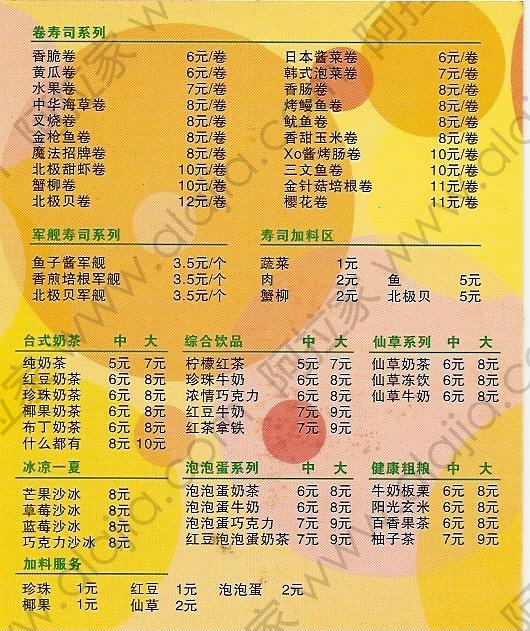 卷寿司系列
香脆卷 6元/卷 日本酱菜卷 6元/卷
黄瓜卷 6元/卷 韩式泡菜卷 7元/卷
水果卷 7元/卷 香肠卷 8元/卷
中华海草卷 8元/卷 烤鳗鱼卷 8元/卷
叉烧卷 8元/卷 鱿鱼卷 8元/卷
金枪鱼卷 8元/卷 香甜玉米卷 8元/卷
魔法招牌卷 8元/卷 Xo酱烤肠卷 10元/卷
北极甜虾卷 10元/卷 三文鱼卷 10元/卷
蟹柳卷 10元/卷 金针菇培根卷 11元/卷
北极贝卷 12元/卷 樱花卷 11元/卷
军舰寿司系列 寿司加料区
鱼子酱军舰 3.5元/个 蔬菜 1元
香煎培根军舰 3.5元/个 肉 2元 鱼 5元
北极贝军舰 3.5元/个 蟹柳 2元 北极贝 5元
台式奶茶 中 大 综合饮品 中 大 仙草系列 中 大
纯奶茶 5元 7元 柠檬红茶 5元 7元 仙草奶茶 6元 8元
红豆奶茶 6元 8元 珍珠牛奶 6元 8元 仙草冻饮 6元 8元
珍珠奶茶 6元 8元 浓情巧克力 6元 8元 仙草牛奶 6元 8元
椰果奶茶 6元 8元 红豆牛奶 7元 9元
布丁奶茶 6元 8元 红茶拿铁 7元 9元
什么都有 8元 10元
冰凉一夏 泡泡蛋系列 中 大 健康粗粮 中 大
芒果沙冰 8元 泡泡蛋奶茶 6元 8元 牛奶板栗 6元 8元
草莓沙冰 8元 泡泡蛋牛奶 6元 8元 阳光玄米 6元 8元
蓝莓沙冰 8元 泡泡蛋巧克力 7元 9元 百香果茶 6元 8元
巧克力沙冰 8元 红豆泡泡蛋奶茶 7元 9元 柚子茶 7元 9元
加料服务
珍珠 1元 红豆 1元 泡泡蛋 2元
椰果 1元 仙草 2元
阿拉家 www.alajia.com